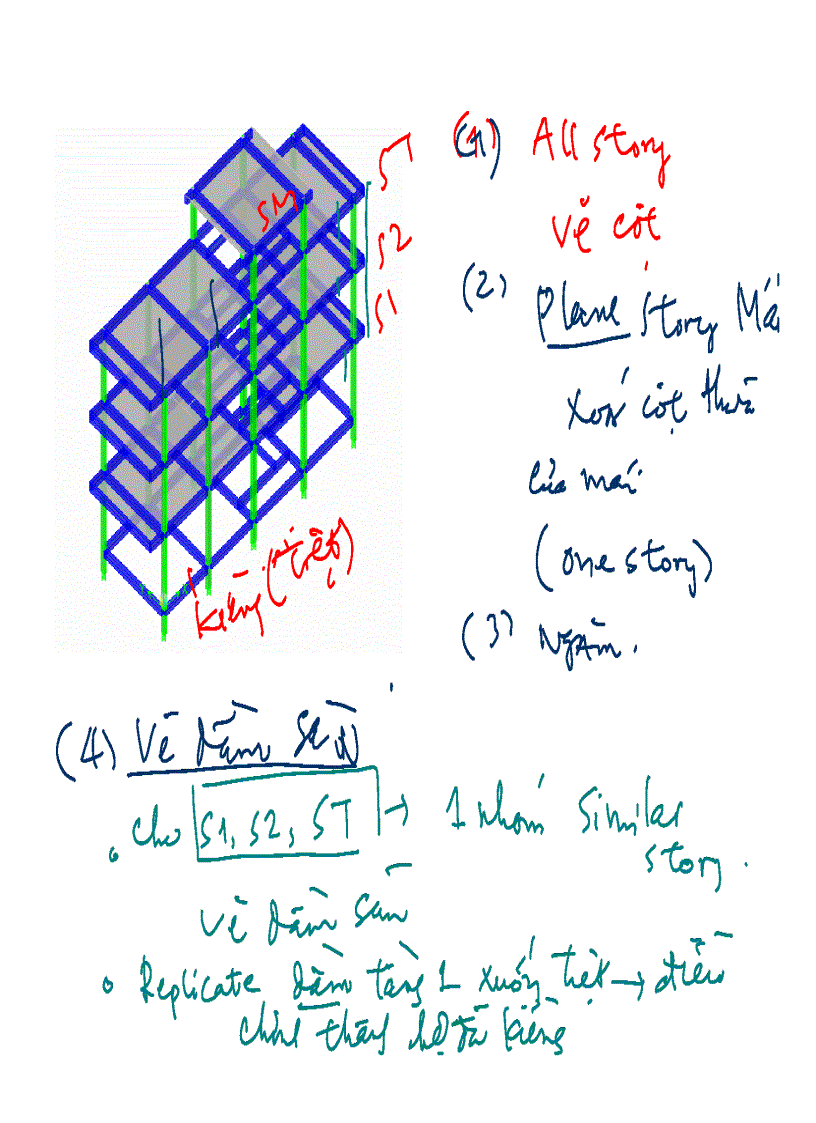 ST
SM
S2
S1
Kiềng (trệt)
(1) All story
Vẽ cột
(2) Plane story Mái
Xóa cột thừa
của mái
(One story)
(3) Ngàm.
(4) Vẽ dầm sàn
• cho S1, S2, ST → 1 nhóm Similar
story.
Vẽ dầm sàn
• Replicate dầm tầng 1 xuống trệt → điều
chỉnh thành hệ đà kiềng